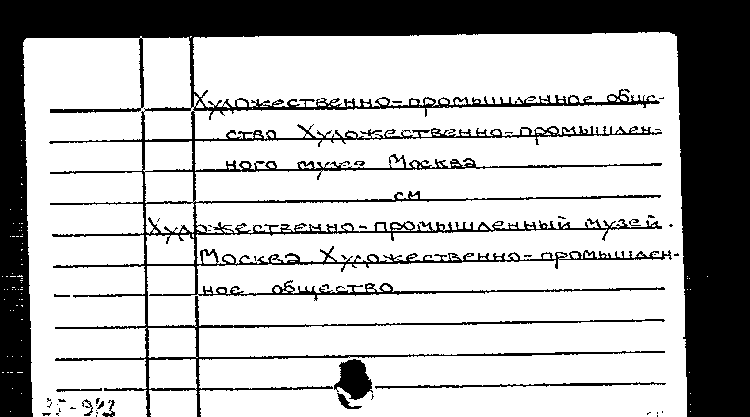 Художественно-промышленное обще-
ство Художественно-промышлен-
ного музея Москва
см
Художественно-промышленный музей.
Москва Художественно-промышлен-
ное общество